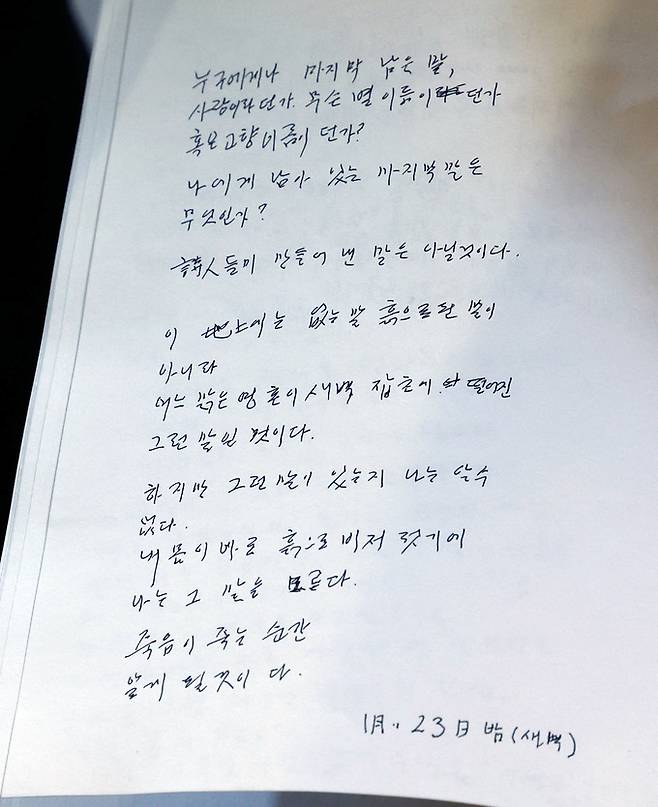 누구에게나 마지막 남은 말,
사랑이라던가. 무슨 별 이름이던가
혹은 고향 이름이던가?
나에게 남아 있는 마지막 말은
무엇인가?
詩人들이 만들어 낸 말은 아닐것이다.
이 地上에는 없는 말 흙으로 된 말이
아니라
어느 맑은 영혼이 새벽 잡초에 떨어진
그런 말일 것이다.
하지만 그런 말이 있는지 나는 알수
없다.
내 몸이 바로 흙으로 비저 젓기에
나는 그 말을 모른다.
죽음이 죽는 순간
알게 될 것이다.
1月. 23日 밤(새벽)